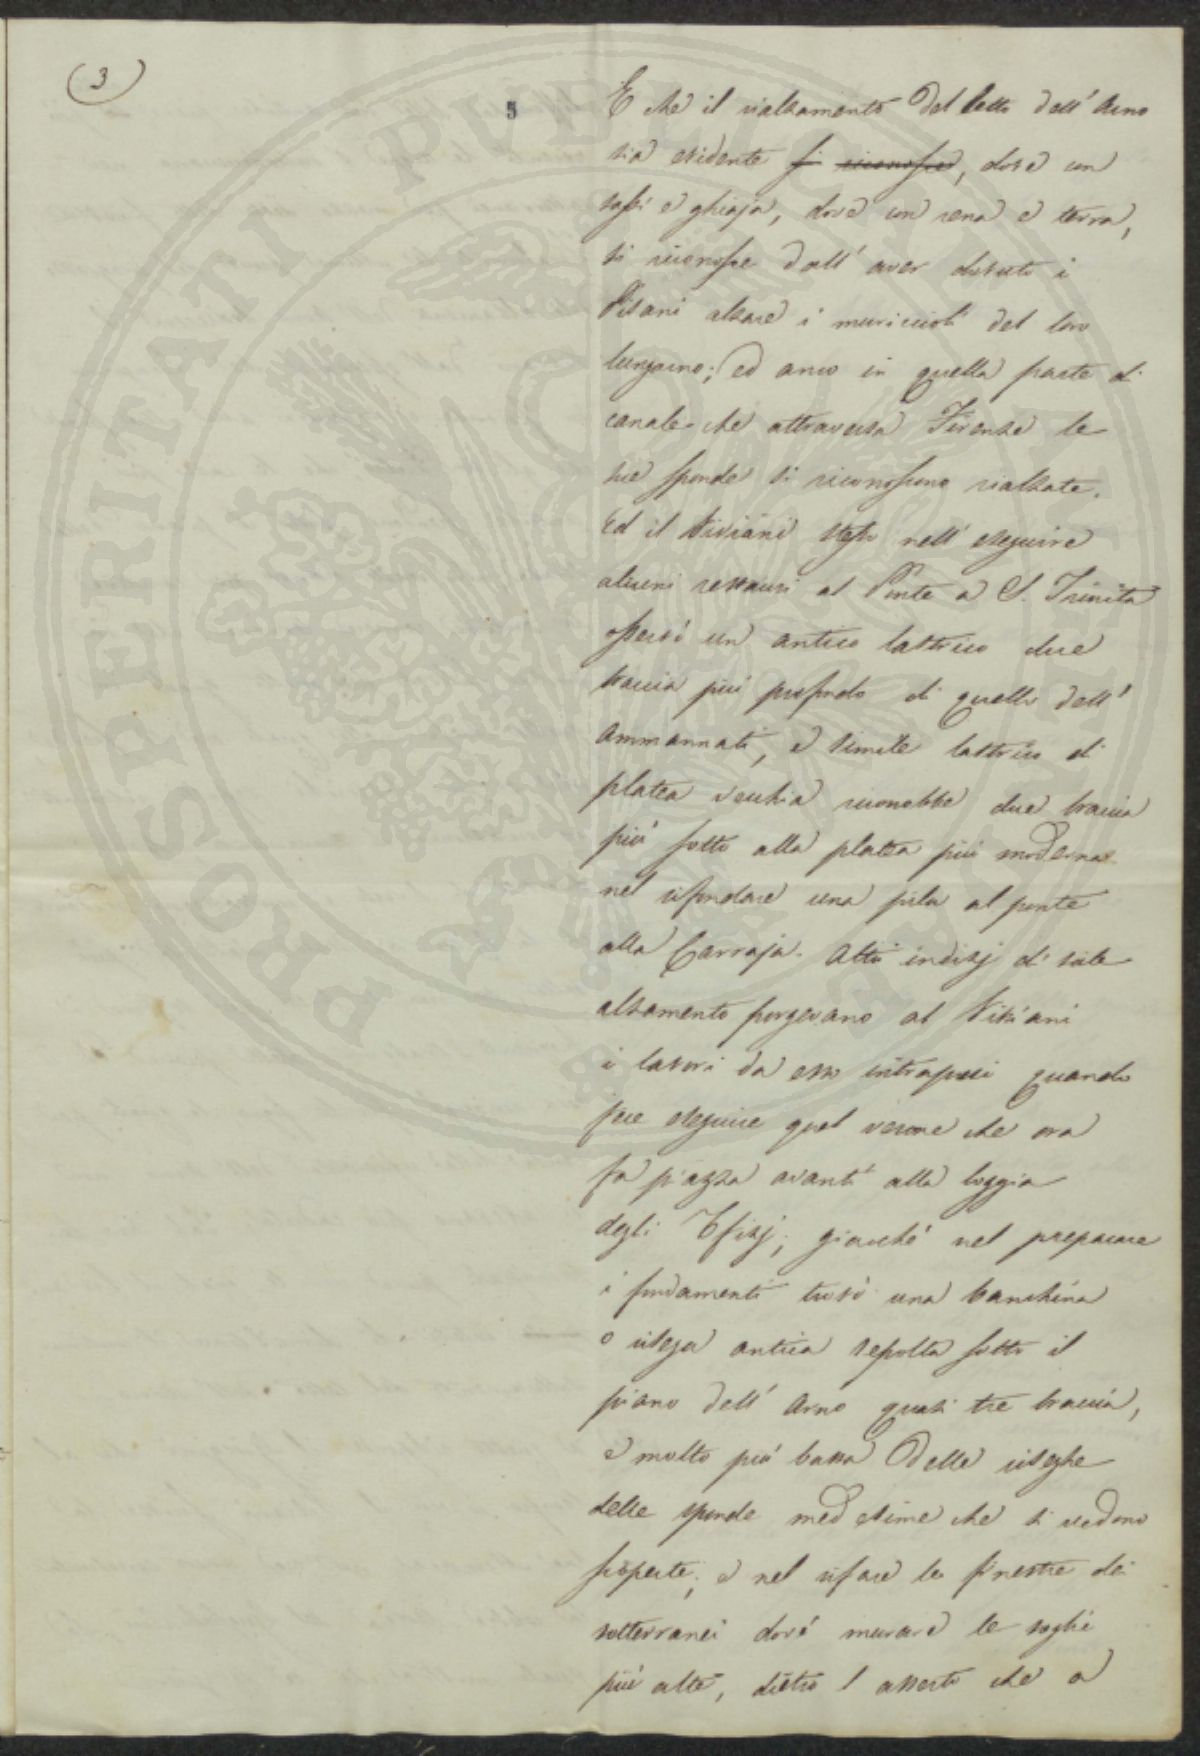 (3)
5
E che il rialzamento del letto dell' Arno
sia evidente si riconosce, dove con
sassi e ghiaja, dove con rena e terra,
si riconosce dall' aver dovuto i
Pisani alzare i muriccioli del loro
lungarno; ed anco in quella parte di
canale che attraversa Firenze le
sue sponde si riconoscono rialzate.
Ed il Viviani stesso nell' eseguire
alcuni restauri al Ponte a S. Trinita
osservò un antico lastrico due
braccia più profondo di quello dell'
Ammannati, e simile lastrico di
platea vecchia riconobbe due braccia
più sotto alla platea più moderna
nel rifondare una pila al ponte
alla Carraja. Altri indizj di tale
alzamento porgevano al Viviani
i lavori da esso intrapresi quando
fece eseguire quel verone che ora
fa piazza avanti alla loggia
degli Ufizj; giacchè nel preparare
i fondamenti trovò una banchina
o risega antica sepolta sotto il
piano dell' Arno quasi tre braccia,
e molto più bassa delle riseghe
delle sponde medesime che si vedono
scoperte; e nel rifare le finestre dei
sotterranei dovè murare le soglie
più alte, dietro l' asserto che a
PROSPERITATI PUBLICAE AUGENDAE